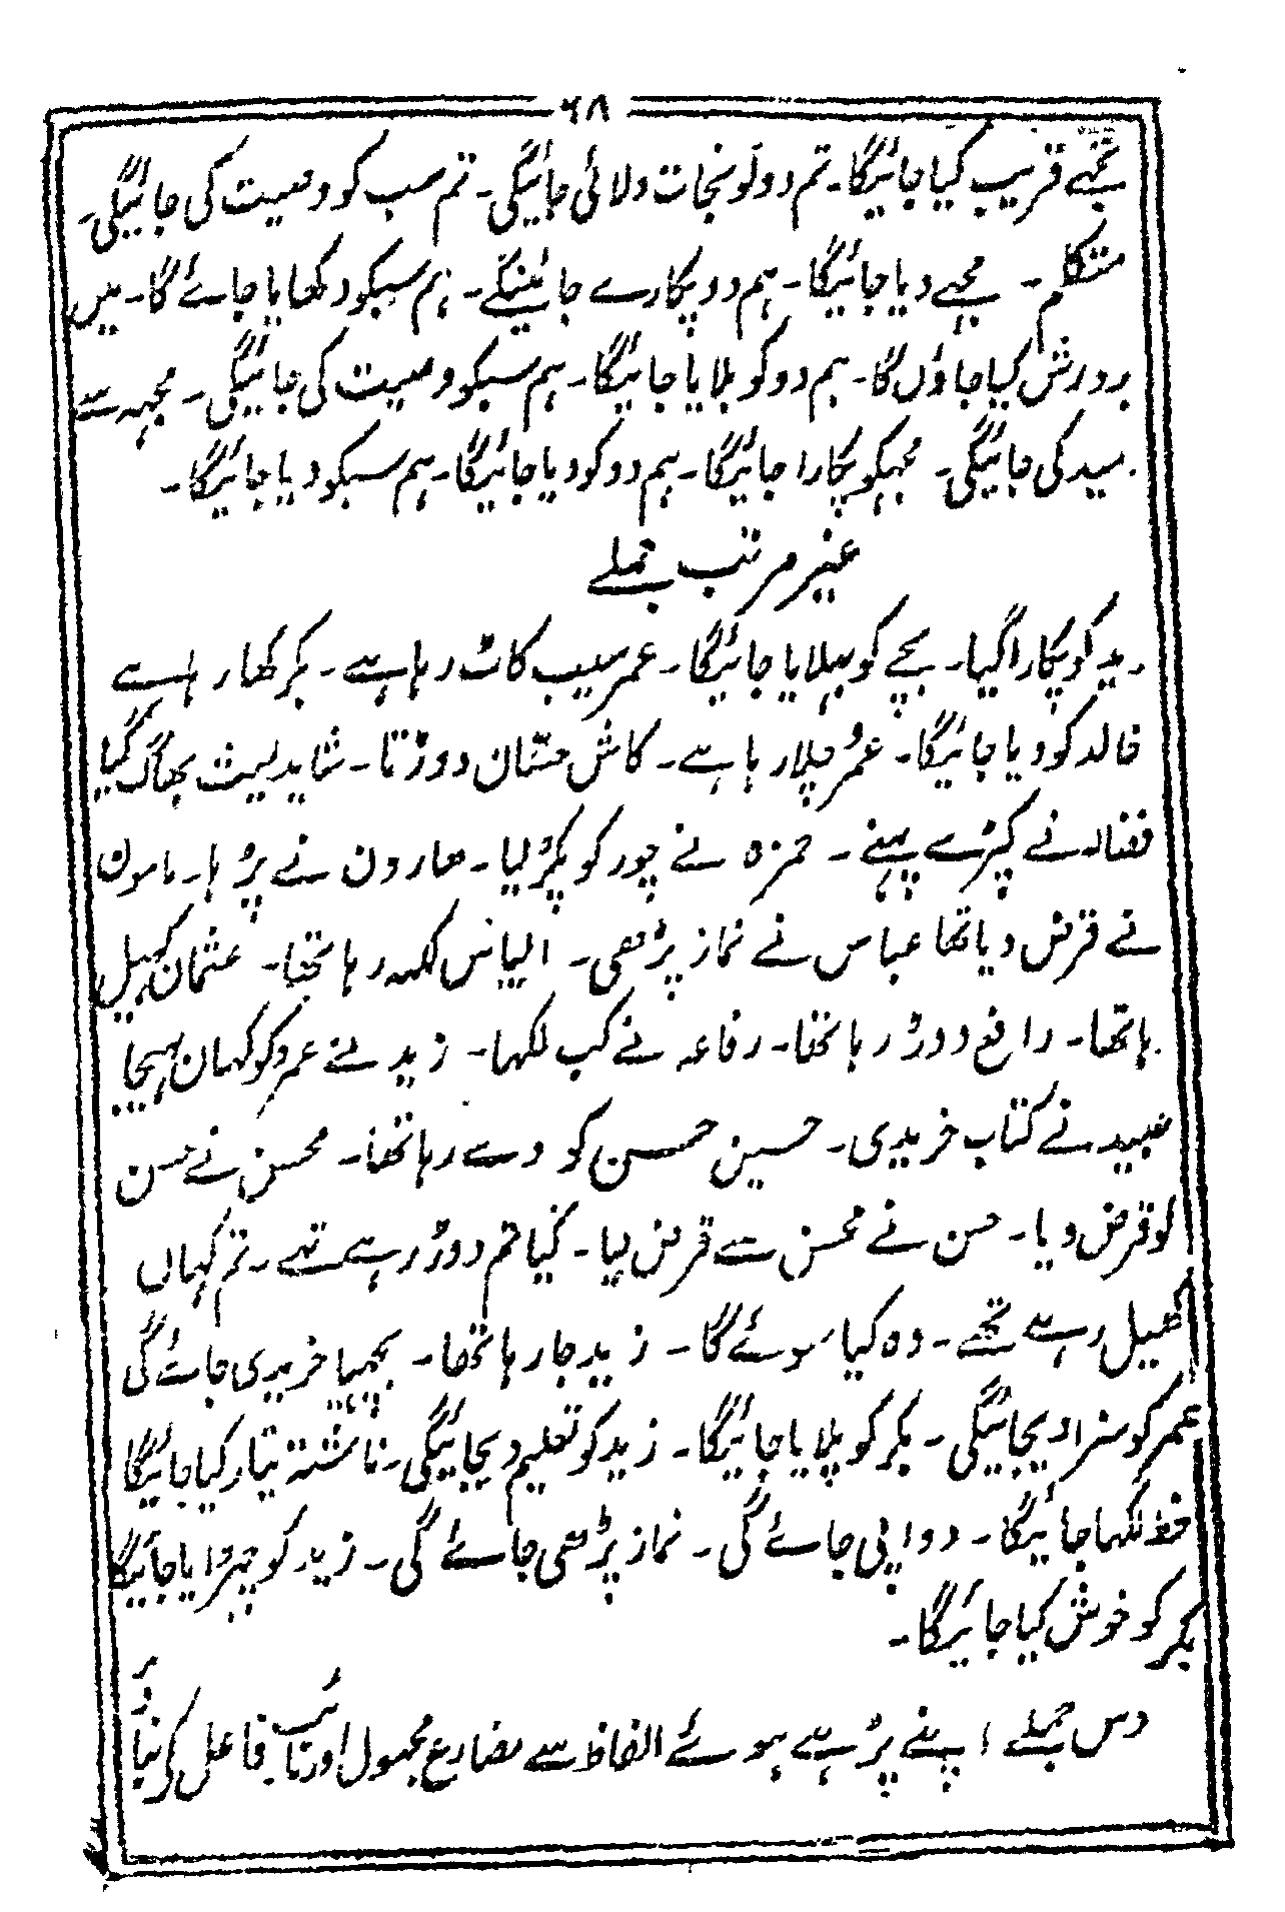 ۶۸
تجہے قریب کیا جائیگا۔ تم دو لو نجات دلائی جائیگی۔ تم سب کو وصیت کی جائیگی۔
متکلم ۔ مجہے دیا جائیگا۔ ہم دو پکارے جائینگے۔ ہم سبکو دکھایا جائے گا۔ میں
پرورش کیا جاؤں گا۔ ہم دو کو بلایا جائیگا۔ ہم سبکو وصیت کی جائیگی۔ مجہہ سے
میدکی جائیگی۔ مجہکو پکارا جائیگا۔ ہم دو کو دیا جائیگا۔ ہم سبکو دیا جائیگا۔
غیر مرتب جملے
زید کو پکارا گیا۔ بچے کو بہلایا جائیگا۔ عمر سیب کاٹ رہا ہے۔ بکر کھا رہا ہے
خالد کو دیا جائیگا۔ عمُر چلا رہا ہے۔ کاش حسّان دوڑتا۔ شاید لیث بھاگ گیا
نے کپڑے پہنے۔ حمزہ نے چور کو پکڑ لیا۔ ھارون نے پڑہا۔ مامون
نے قرض دیا تھا عباس نے نماز پڑھی۔ الیاس لکہہ رہا تھا۔ عثمان کہیل
رہا تھا۔ رافع دوڑ رہا تھا۔ رفاعہ نے کب لکہا۔ زید نے عمرو کو کہان بہیجا
عبید نے کتاب خریدی۔ حسین حسن کو دے رہا تھا۔ محسن نے حسن
کو قرض دیا۔ حسن نے محسن سے قرض لیا۔ کیا تم دوڑ رہے تہے۔ تم کہاں
کھیل رہے تھے۔ وہ کیا سوئے گا۔ زید جا رہا تھا۔ بچہیا خریدی جائے گی
عمر کو سزا دیجائیگی۔ بکر کو پلایا جائیگا۔ زید کو تعلیم دیجائیگی۔ ناشتہ تیار کیا جائیگا
خط لکہا جائیگا۔ دوا پی جائے گی۔ نماز پڑھی جائے گی۔ زید کو چہڑایا جائیگا
بکر کو خوش کیا جائیگا۔
دس جملے اپنے پڑہے ہوئے الفاظ سے مضارع مجہول اور نائب فاعل کی بناؤ